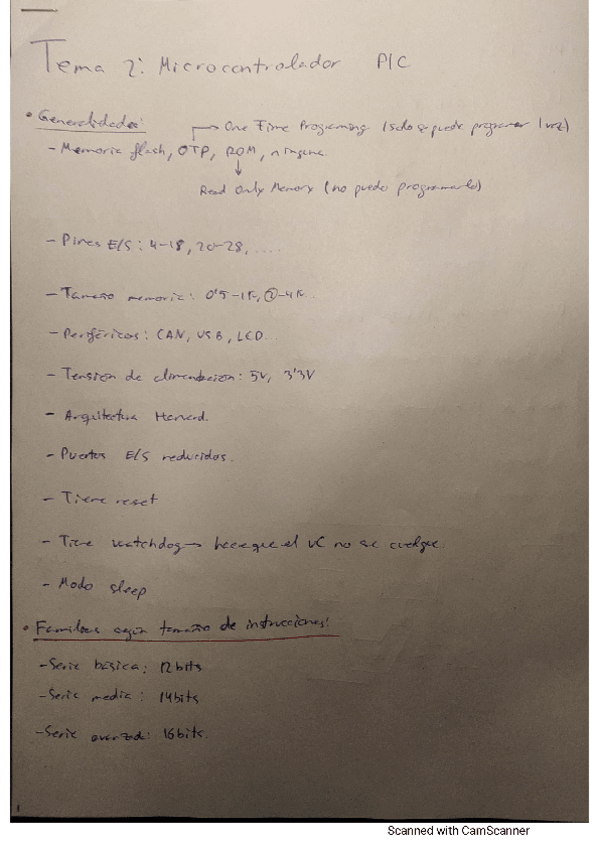 Tema 2: Microcontrolador PIC
• Generalidades:
One Time Programing (solo se puede programar 1 vez)
- Memoria flash, OTP, ROM, ninguna.
Read Only Memory (no puedo programarlo)
- Pines E/S: 4-18, 20-28, ....
- Tamaño memoria: 0'5-1K, 2-4K..
- Periféricos: CAN, USB, LCD...
- Tensión de alimentación: 5V, 3'3V
- Arquitectura Harvard.
- Puertos E/S reducidos.
- Tiene reset
- Tiene watchdog → hace que el uC no se cuelgue.
- Modo sleep
• Familias según tamaño de instrucciones:
- Serie básica: 12 bits
- Serie media: 14 bits
- Serie avanzada: 16 bits.
Scanned with CamScanner